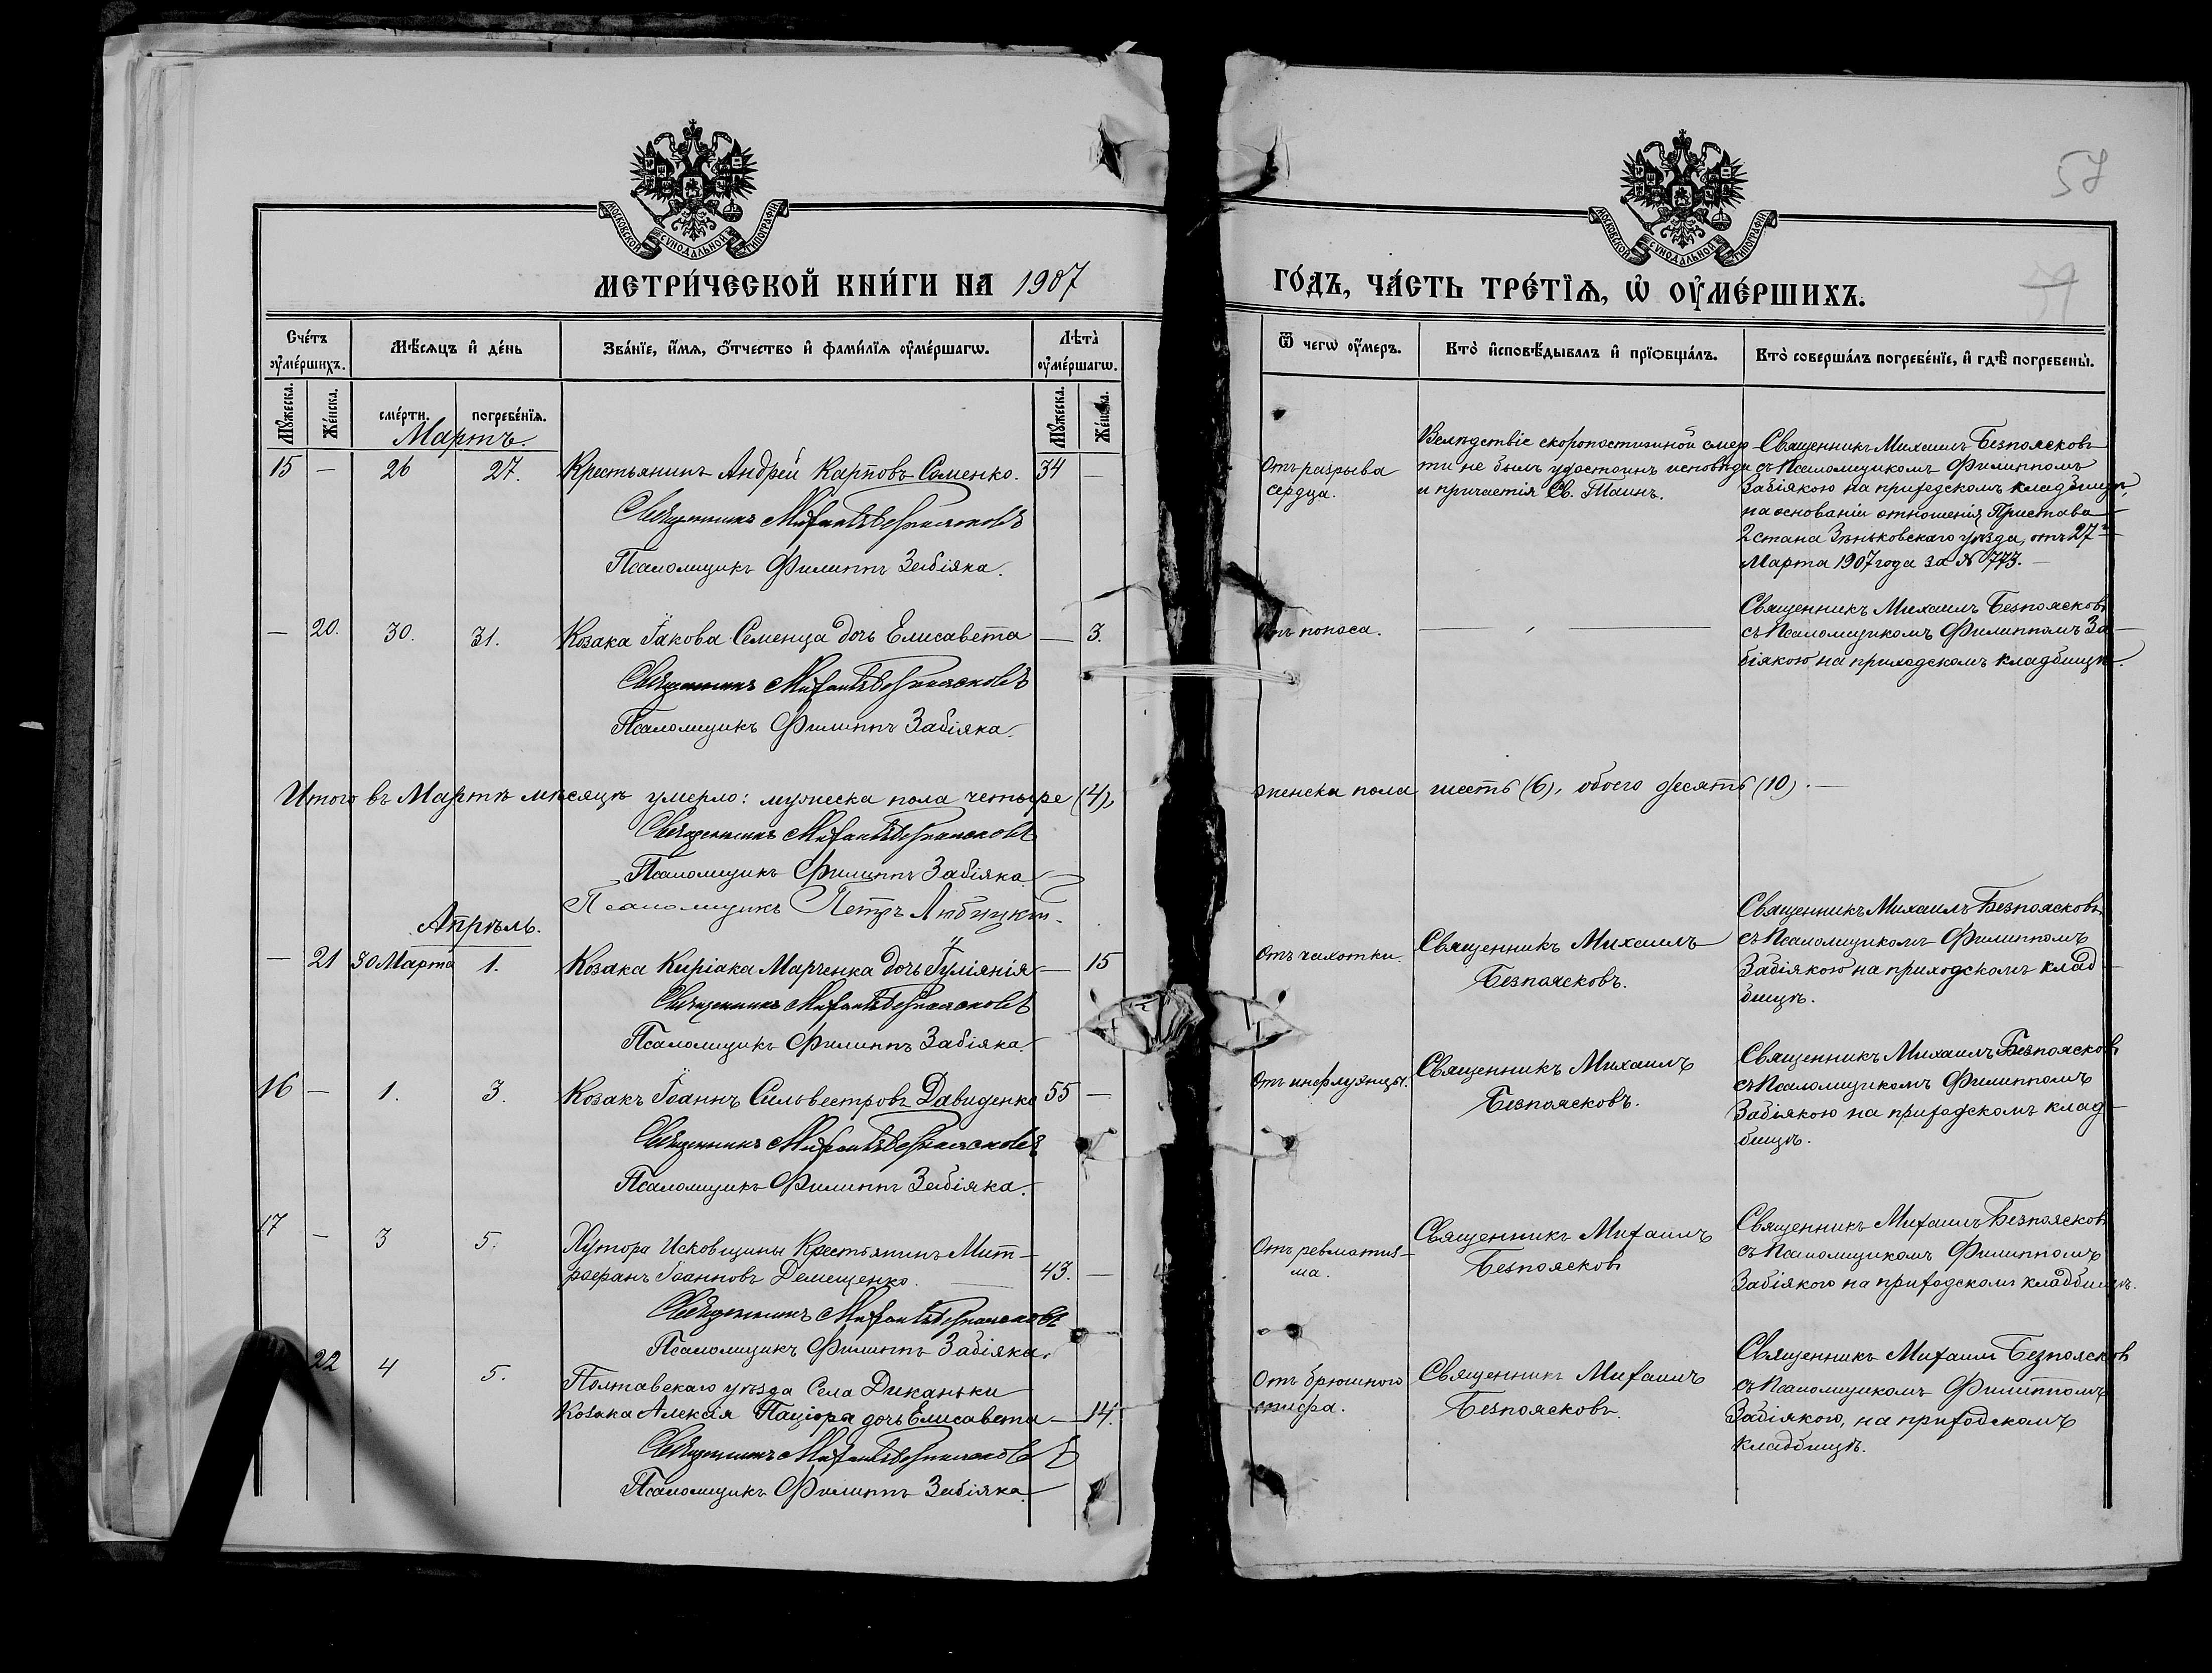 57
МОСКОВСКОЙ СѴНОДАЛЬНОЙ ТИПОГРАФІИ
МОСКОВСКОЙ СѴНОДАЛЬНОЙ ТИПОГРАФІИ
МЕТРИ́ЧЕСКОЙ КНИ́ГИ НА 1907
ГО́ДЪ, ЧА́СТЬ ТРЕ́ТЇѦ, Ѡ҆ ОУ҆МЕ́РШИХЪ.
Сче́тъ оу҆ме́ршихъ.
Мѣ́сяцъ и҆ де́нь
Зва́нїе, и҆́мя, ѻ҆́тчество и҆ фами́лїя оу҆ме́ршагѡ.
Лѣта̀ оу҆ме́ршагѡ.
Ѿ чегѡ̀ оу҆́меръ.
Кто̀ и҆сповѣ́дывалъ и҆ прїѻбща́лъ.
Кто̀ соверша́лъ погребе́нїе, и҆ гдѣ̀ погребены̀.
Му́жеска.
Же́нска.
сме́рти.
погребе́нїя.
Му́жеска.
Же́нска.
Мартъ.
15 — 26 27. Крестьянинъ Андрей Карповъ Семенко. 34 —
Священникъ Михаилъ Безпоясковъ
Псаломщикъ Филиппъ Забіяка.
Отъ разрыва
сердца.
Вслѣдствіе скоропостижной смер
ти не былъ удостоинъ исповѣди
и причастія Св. Таинъ.
Священникъ Михаилъ Безпоясковъ
съ Псаломщикомъ Филиппомъ
Забіякою на приходскомъ кладбищѣ,
на основаніи отношенія Пристава
2 стана Зѣньковскаго уѣзда, отъ 27го
Марта 1907 года за № 773. —
— 20. 30. 31. Козака Іакова Семенца дочь Елисавета — 3.
Священникъ Михаилъ Безпоясковъ
Псаломщикъ Филиппъ Забіяка.
Отъ поноса.
Священникъ Михаилъ Безпоясковъ
съ Псаломщикомъ Филиппомъ За
біякою на приходскомъ кладбищѣ.
Итого въ Мартѣ мѣсяцѣ умерло: мужеска пола четыре (4), женска пола шесть (6), обоего десять (10). —
Священникъ Михаилъ Безпоясковъ
Псаломщикъ Филиппъ Забіяка
Псаломщикъ Петръ Любицкій.
Апрѣль.
— 21 30 Марта 1. Козака Киріака Марченка дочь Іуліянія — 15
Священникъ Михаилъ Безпоясковъ
Псаломщикъ Филиппъ Забіяка.
Отъ чахотки.
Священникъ Михаилъ
Безпоясковъ.
Священникъ Михаилъ Безпоясковъ
съ Псаломщикомъ Филиппомъ
Забіякою на приходскомъ клад
бищѣ.
16 — 1. 3. Козакъ Іоаннъ Сильвестровъ Давиденко 55 —
Священникъ Михаилъ Безпоясковъ
Псаломщикъ Филиппъ Забіяка.
Отъ инфлуэнцы.
Священникъ Михаилъ
Безпоясковъ.
Священникъ Михаилъ Безпоясковъ
съ Псаломщикомъ Филиппомъ
Забіякою на приходскомъ клад
бищѣ.
17 — 3 5. Хутора Исковщины Крестьянинъ Мит-
рофанъ Іоанновъ Демещенко. 43. —
Священникъ Михаилъ Безпоясковъ
Псаломщикъ Филиппъ Забіяка.
Отъ ревматиз-
ма.
Священникъ Михаилъ
Безпоясковъ
Священникъ Михаилъ Безпоясковъ
съ Псаломщикомъ Филиппомъ
Забіякою на приходскомъ кладбищѣ.
22 4 5. Полтавскаго уѣзда Села Диканьки
Козака Алексія Паціора дочь Елисавета — 14.
Священникъ Михаилъ Безпоясковъ
Псаломщикъ Филиппъ Забіяка.
Отъ брюшного
тифа.
Священникъ Михаилъ
Безпоясковъ.
Священникъ Михаилъ Безпоясков
съ Псаломщикомъ Филиппомъ
Забіякою, на приходскомъ
кладбищѣ.